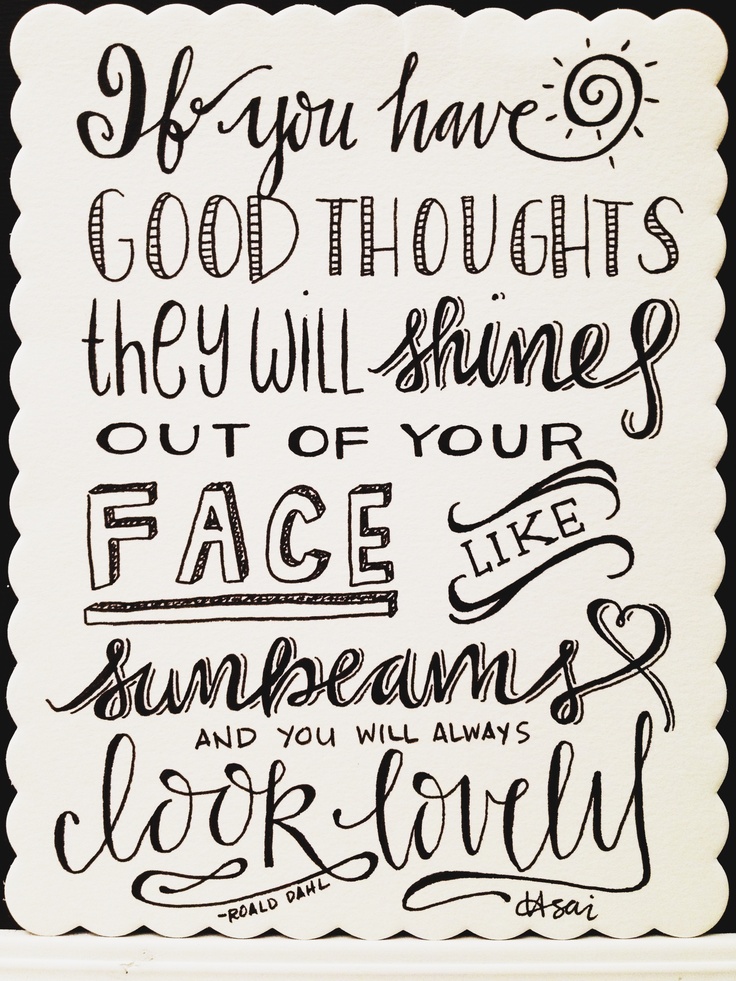 If you have
GOOD THOUGHTS
they will shine
OUT OF YOUR
FACE LIKE
sunbeams
AND YOU WILL ALWAYS
look lovely
-ROALD DAHL